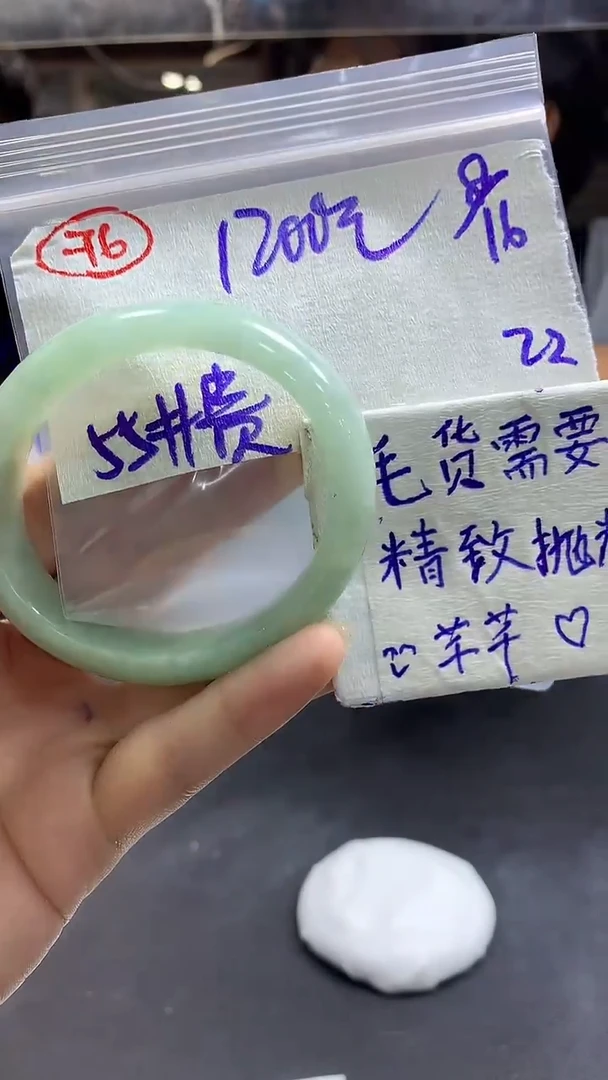 -76
1200元
16
22
55
费
毛货需要
精致抛
芊芊♡